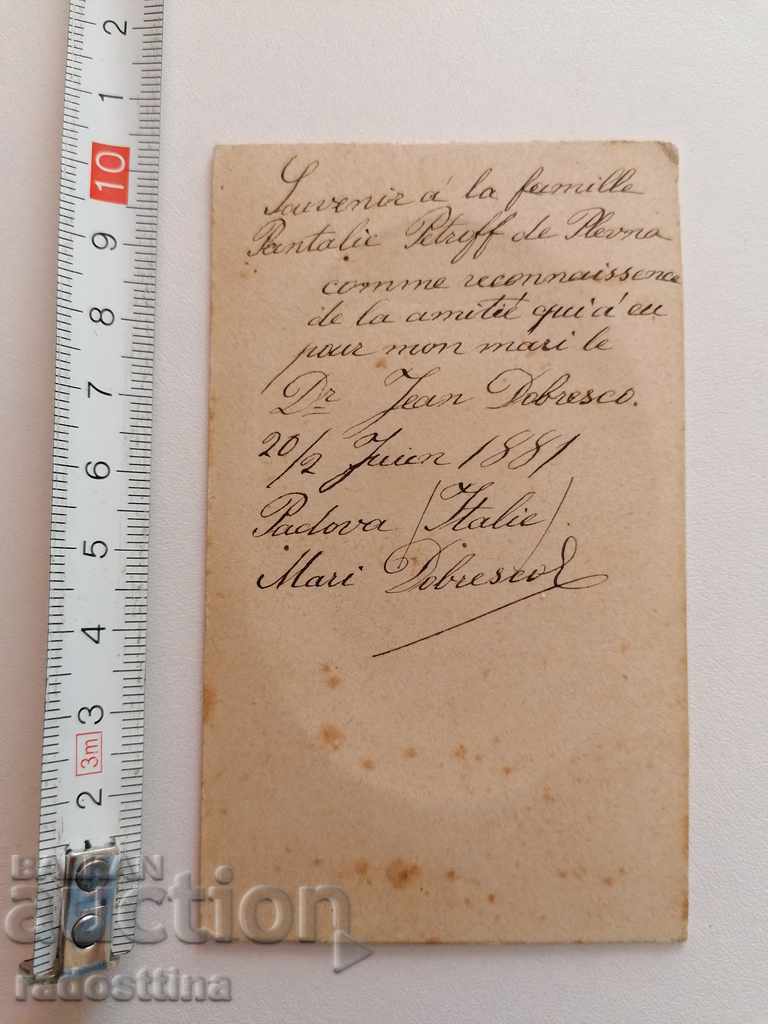 Souvenir á la famille
Pantalie Petroff de Plevna
comme reconnaissence
de la amitié qui á eu
pour mon mari le
Dr Jean Dobresco.
20/2 Juien 1881
Padova (Italie).
Mari Dobresco
2
1
10
9
8
7
6
5
4
3
3m
2
BALKAN
auction
radosttina